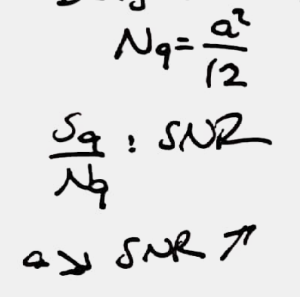 Nq = a²/12
Sq/Nq : SNR
a ↘ SNR ↗